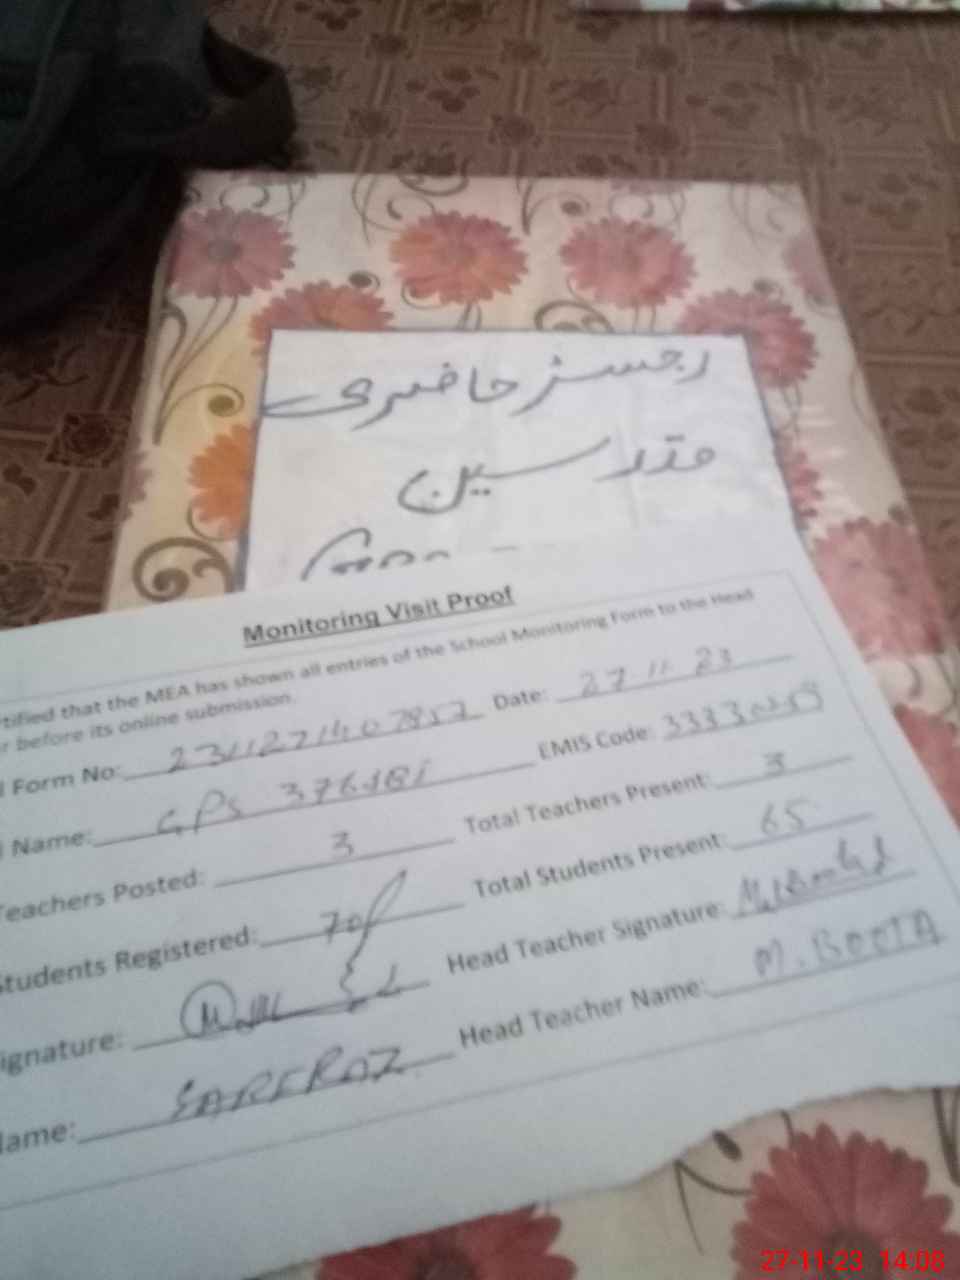 رجسٹر حاضری
مدرسین
Monitoring Visit Proof
rtified that the MEA has shown all entries of the School Monitoring Form to the Head
r before its online submission.
Form No: Date: 27 11 23
Name: GPS 376JBI EMIS Code:
Teachers Posted: 3 Total Teachers Present: 3
Students Registered: 70 Total Students Present: 65
ignature: Head Teacher Signature:
lame: SARFRAZ Head Teacher Name: M. BOOTA
27-11-23 14:08